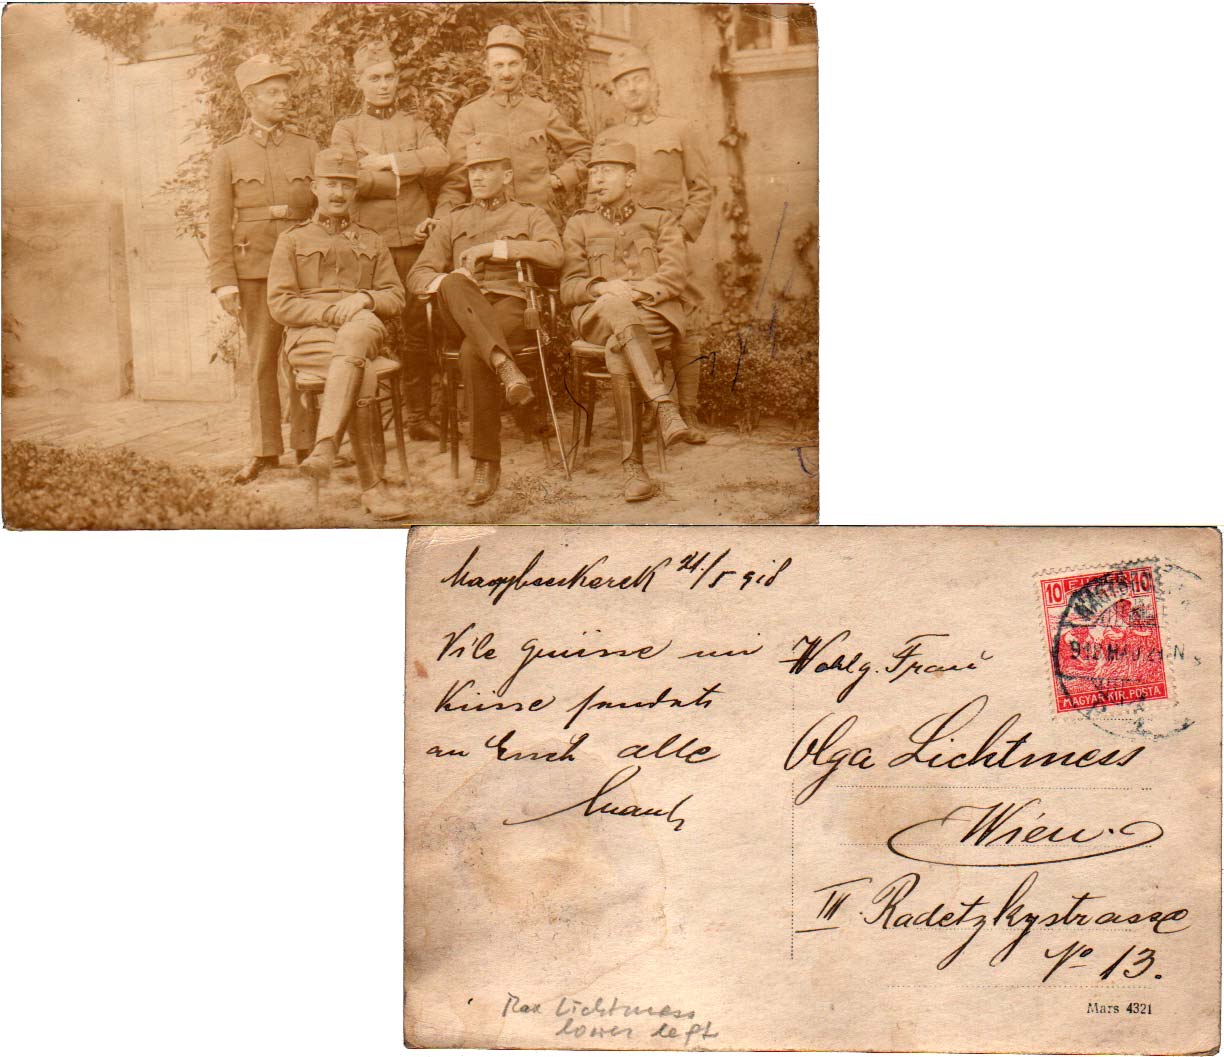 Nagybecskerek 21/5 918
Vile Grüsse un
Küsse sendet
an Euch alle
Wohlg. Frau
Olga Lichtmess
Wien.
III. Radetzkystrasse
No 13.
10 10
MAGYAR KIR. POSTA
Max Lichtmess
lower left
Mars 4321